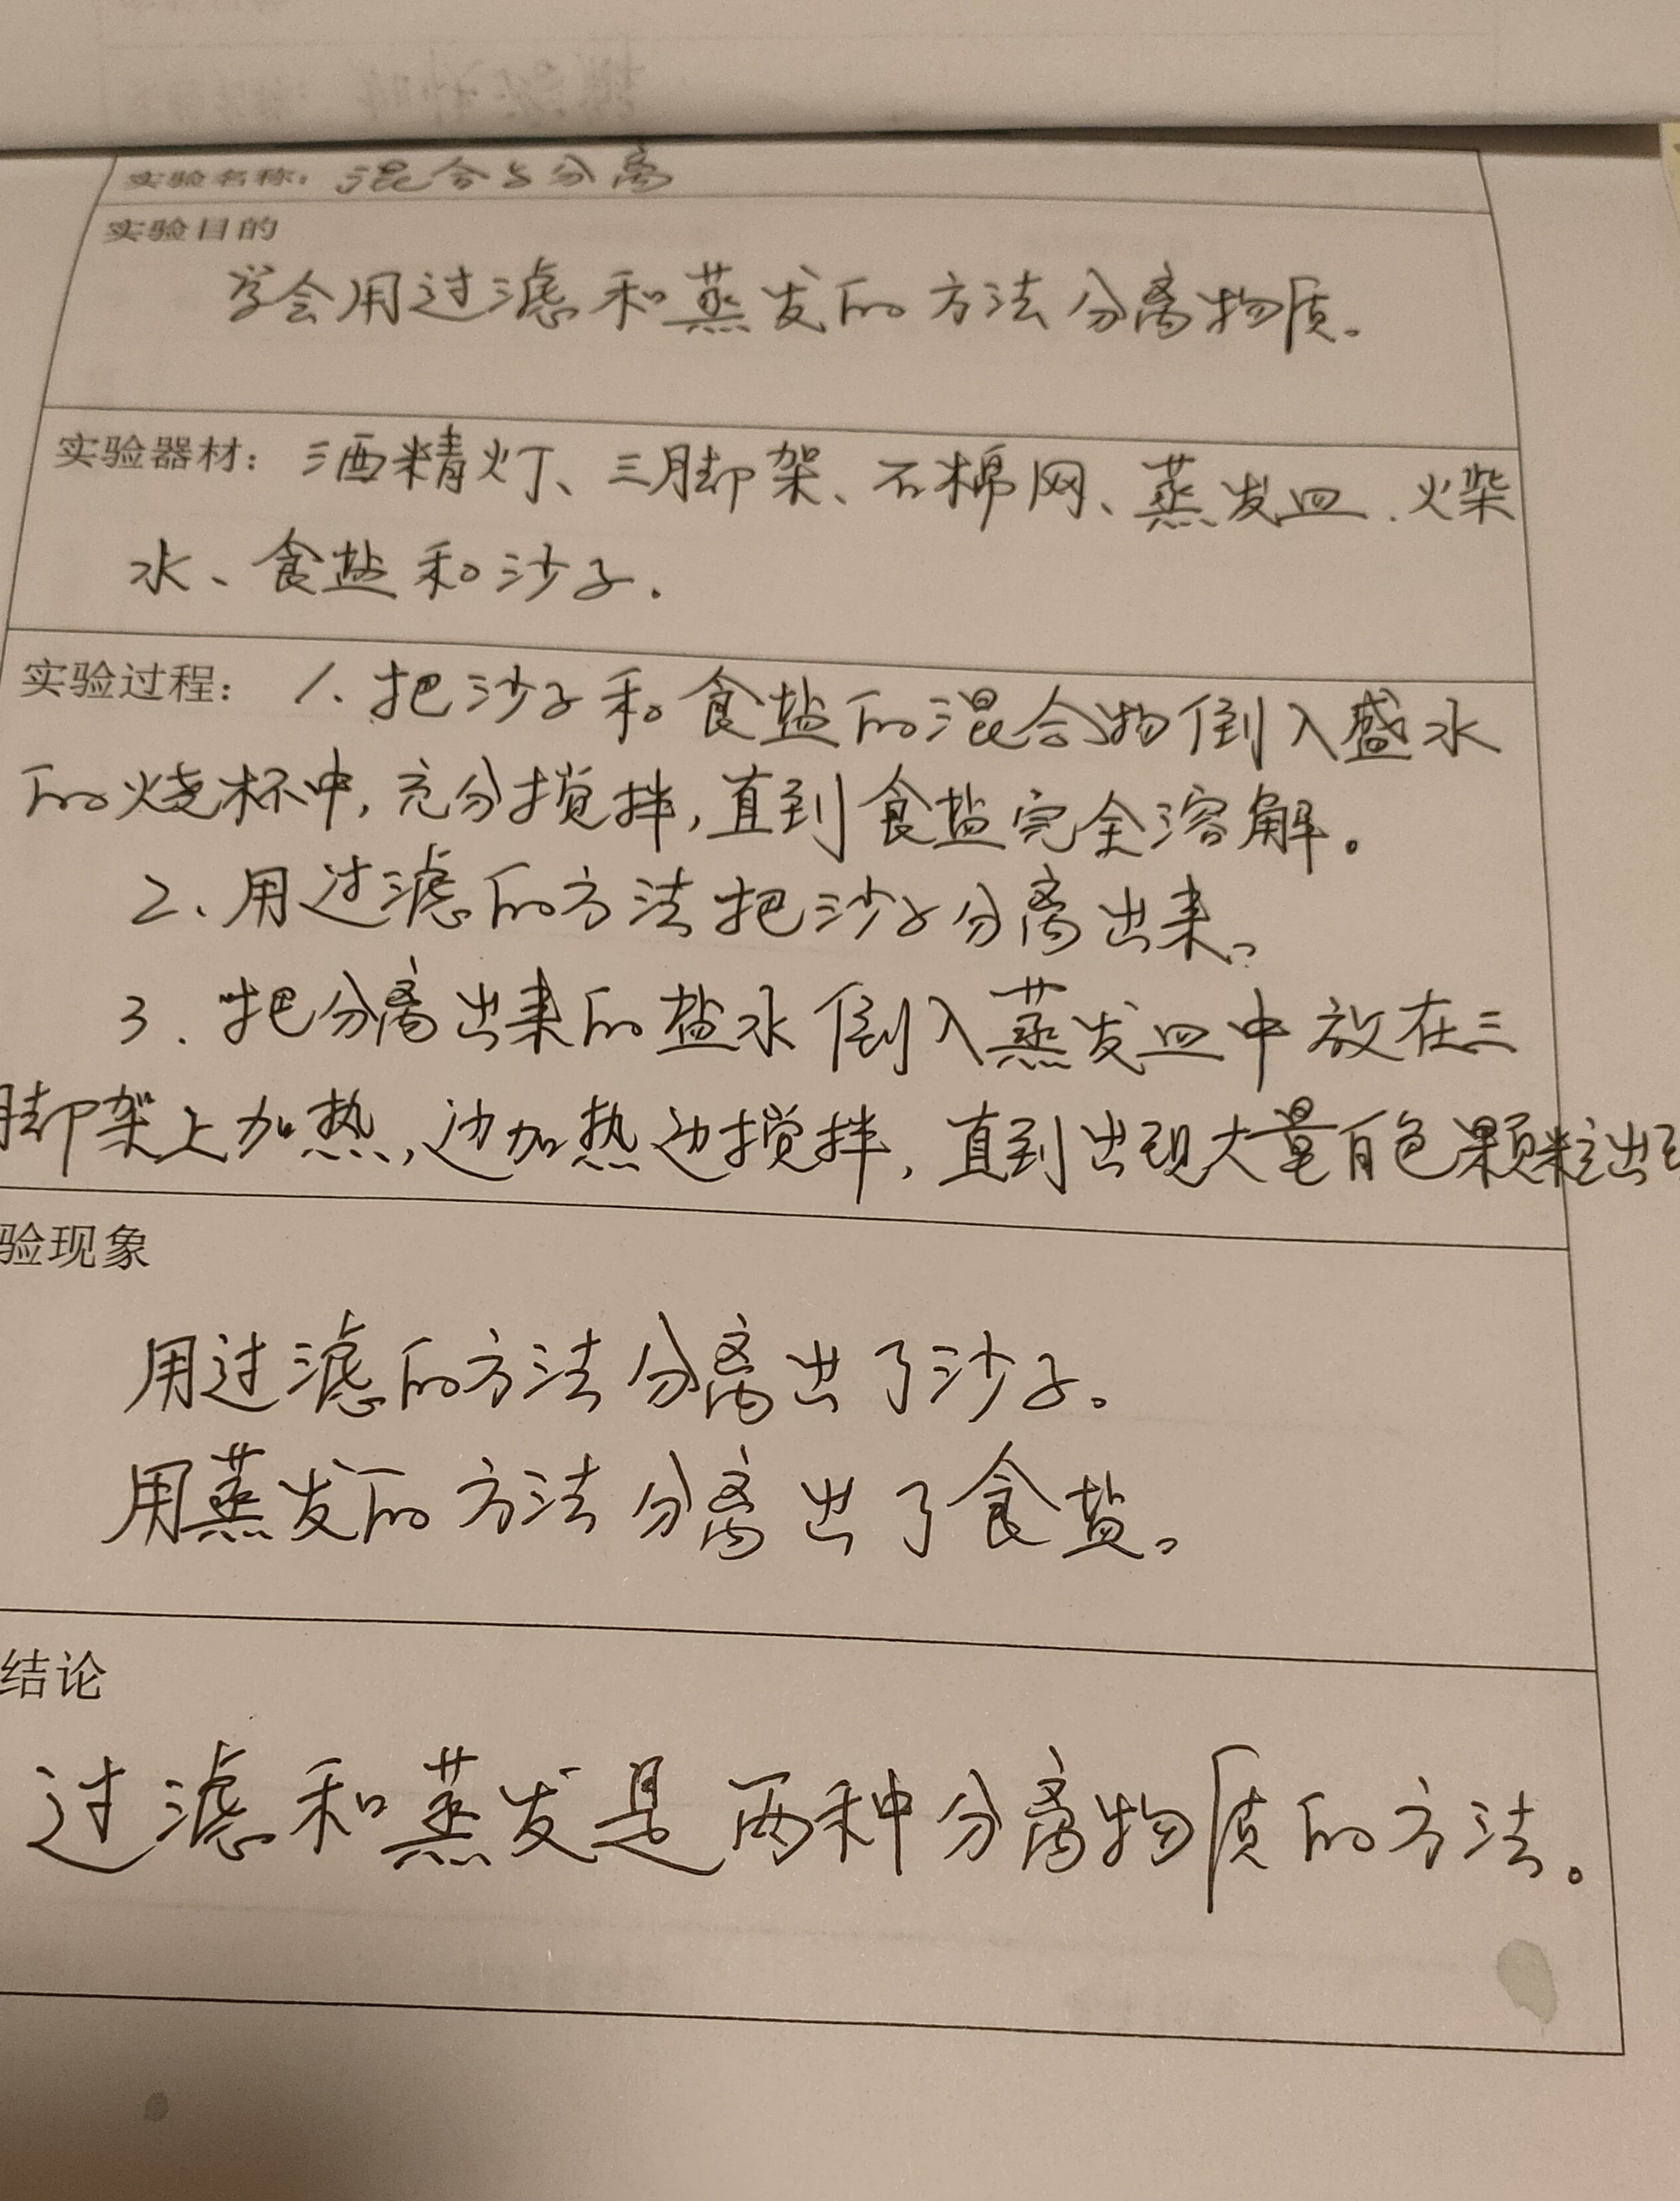 实验名称：混合与分离
实验目的
学会用过滤和蒸发的方法分离物质。
实验器材：酒精灯、三脚架、石棉网、蒸发皿、火柴
水、食盐和沙子.
实验过程：1、把沙子和食盐的混合物倒入盛水
的烧杯中,充分搅拌,直到食盐完全溶解。
2、用过滤的方法把沙子分离出来。
3.把分离出来的盐水倒入蒸发皿中放在三
脚架上加热,边加热边搅拌,直到出现大量白色颗粒出现
验现象
用过滤的方法分离出了沙子。
用蒸发的方法分离出了食盐。
结论
过滤和蒸发是两种分离物质的方法。